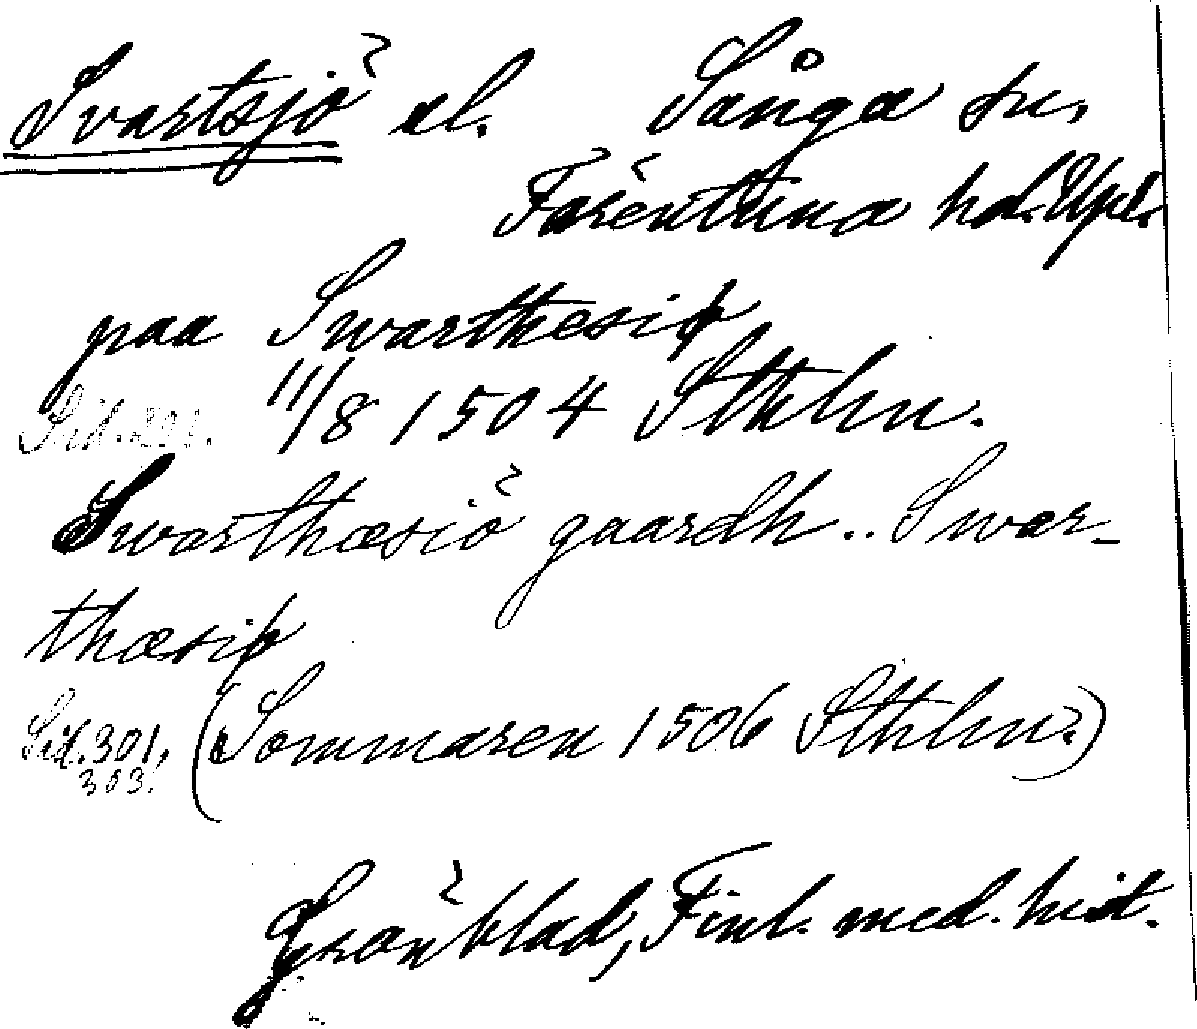 Svartsjö el. Sånga sn,
Färentuna hd. Upl.
paa Swarthesiø
Sid. 291. 11/8 1504 Sthlm.
Swarthæsiö gaardh .. Swar-
thæsiø
Sid. 301, (Sommaren 1506 Sthlm?)
303.
Grönblad, Finl. med. hist.